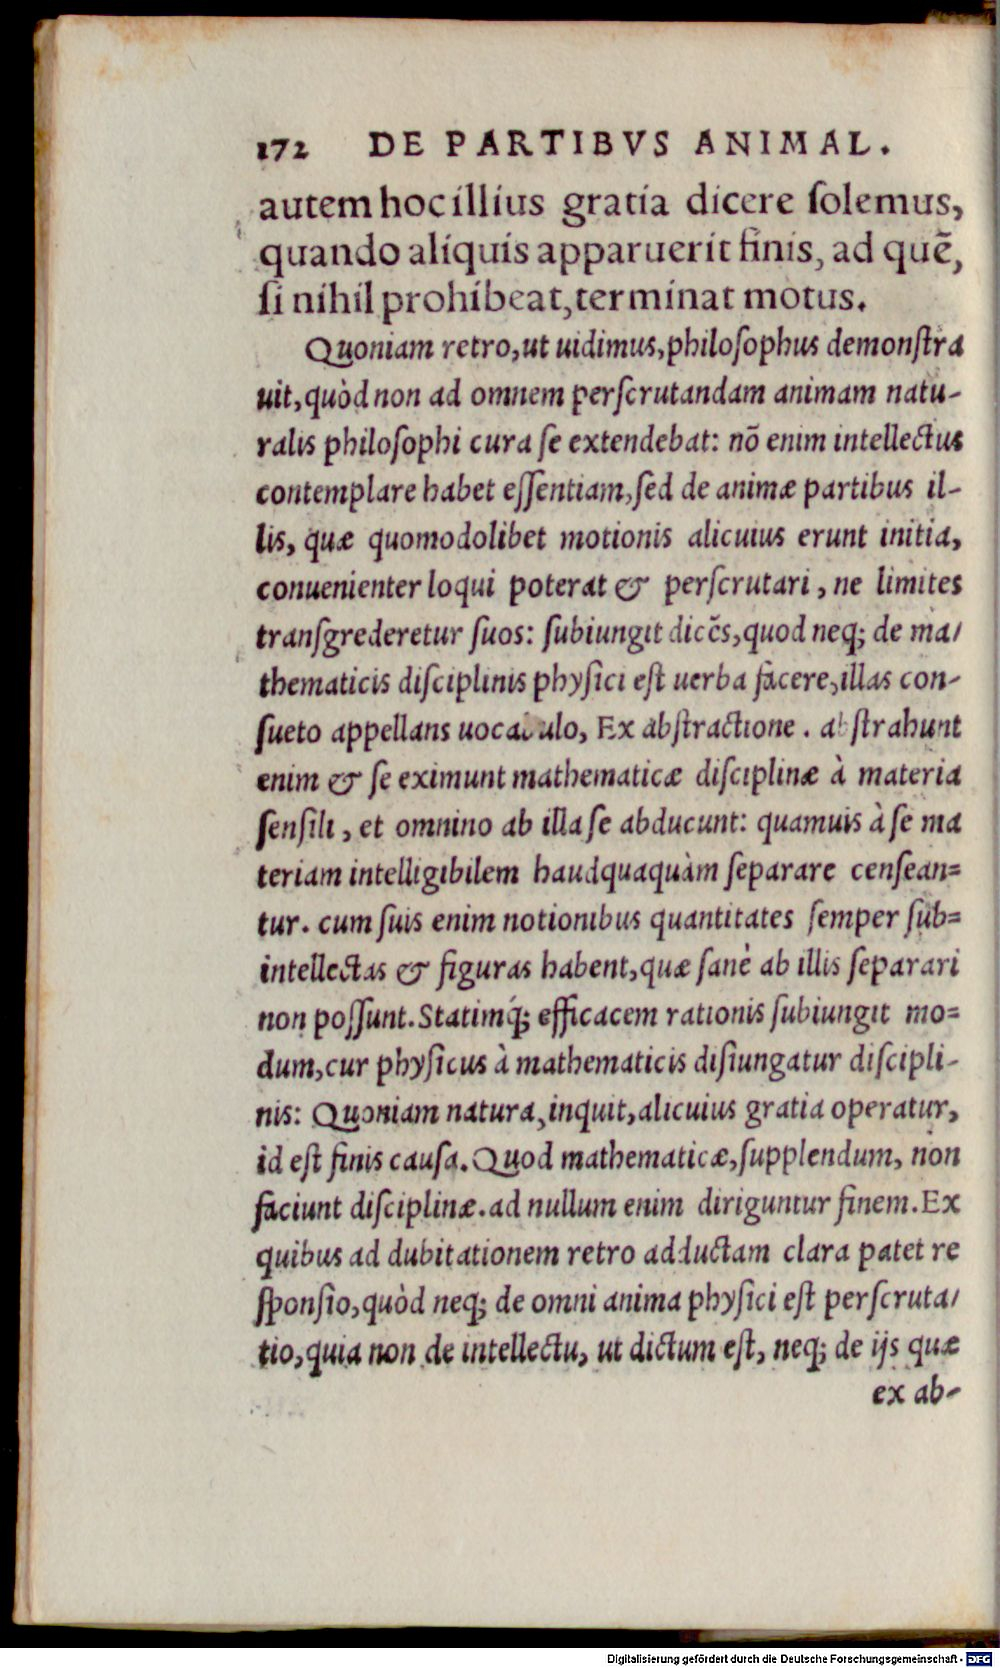 172 DE PARTIBVS ANIMAL.
autem hoc illius gratia dicere ſolemus,
quando aliquis apparuerit finis, ad quē,
ſi nihil prohibeat, terminat motus.
Quoniam retro, ut uidimus, philoſophus demonſtra
uit, quòd non ad omnem perſcrutandam animam natu-
ralis philoſophi cura ſe extendebat: nō enim intellectus
contemplare habet eſſentiam, ſed de animæ partibus il-
lis, quæ quomodolibet motionis alicuius erunt initia,
conuenienter loqui poterat & perſcrutari, ne limites
tranſgrederetur ſuos: ſubiungit dicēs, quod neq; de ma/
thematicis diſciplinis phyſici eſt uerba facere, illas con-
ſueto appellans uocabulo, Ex abſtractione. abſtrahunt
enim & ſe eximunt mathematicæ diſciplinæ à materia
ſenſili, et omnino ab illa ſe abducunt: quamuis à ſe ma
teriam intelligibilem haudquaquàm ſeparare cenſean=
tur. cum ſuis enim notionibus quantitates ſemper ſub=
intellectas & figuras habent, quæ ſanè ab illis ſeparari
non poſſunt. Statimq́; efficacem rationis ſubiungit mo=
dum, cur phyſicus à mathematicis diſiungatur diſcipli-
nis: Quoniam natura, inquit, alicuius gratia operatur,
id eſt finis cauſa. Quod mathematicæ, ſupplendum, non
faciunt diſciplinæ. ad nullum enim diriguntur finem. Ex
quibus ad dubitationem retro adductam clara patet re
ſponſio, quòd neq; de omni anima phyſici eſt perſcruta/
tio, quia non de intellectu, ut dictum eſt, neq; de ijs quæ
ex ab-
Digitalisierung gefördert durch die Deutsche Forschungsgemeinschaft - DFG